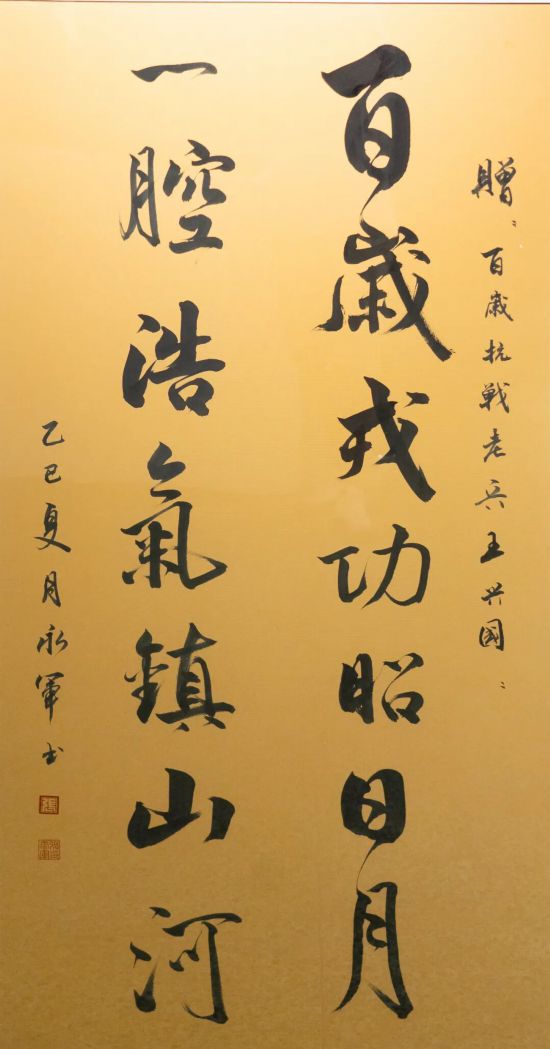 贈:百歲抗戰老兵王兴國:
百歲戎功昭日月
一腔浩氣鎮山河
乙巳夏月永軍书
張